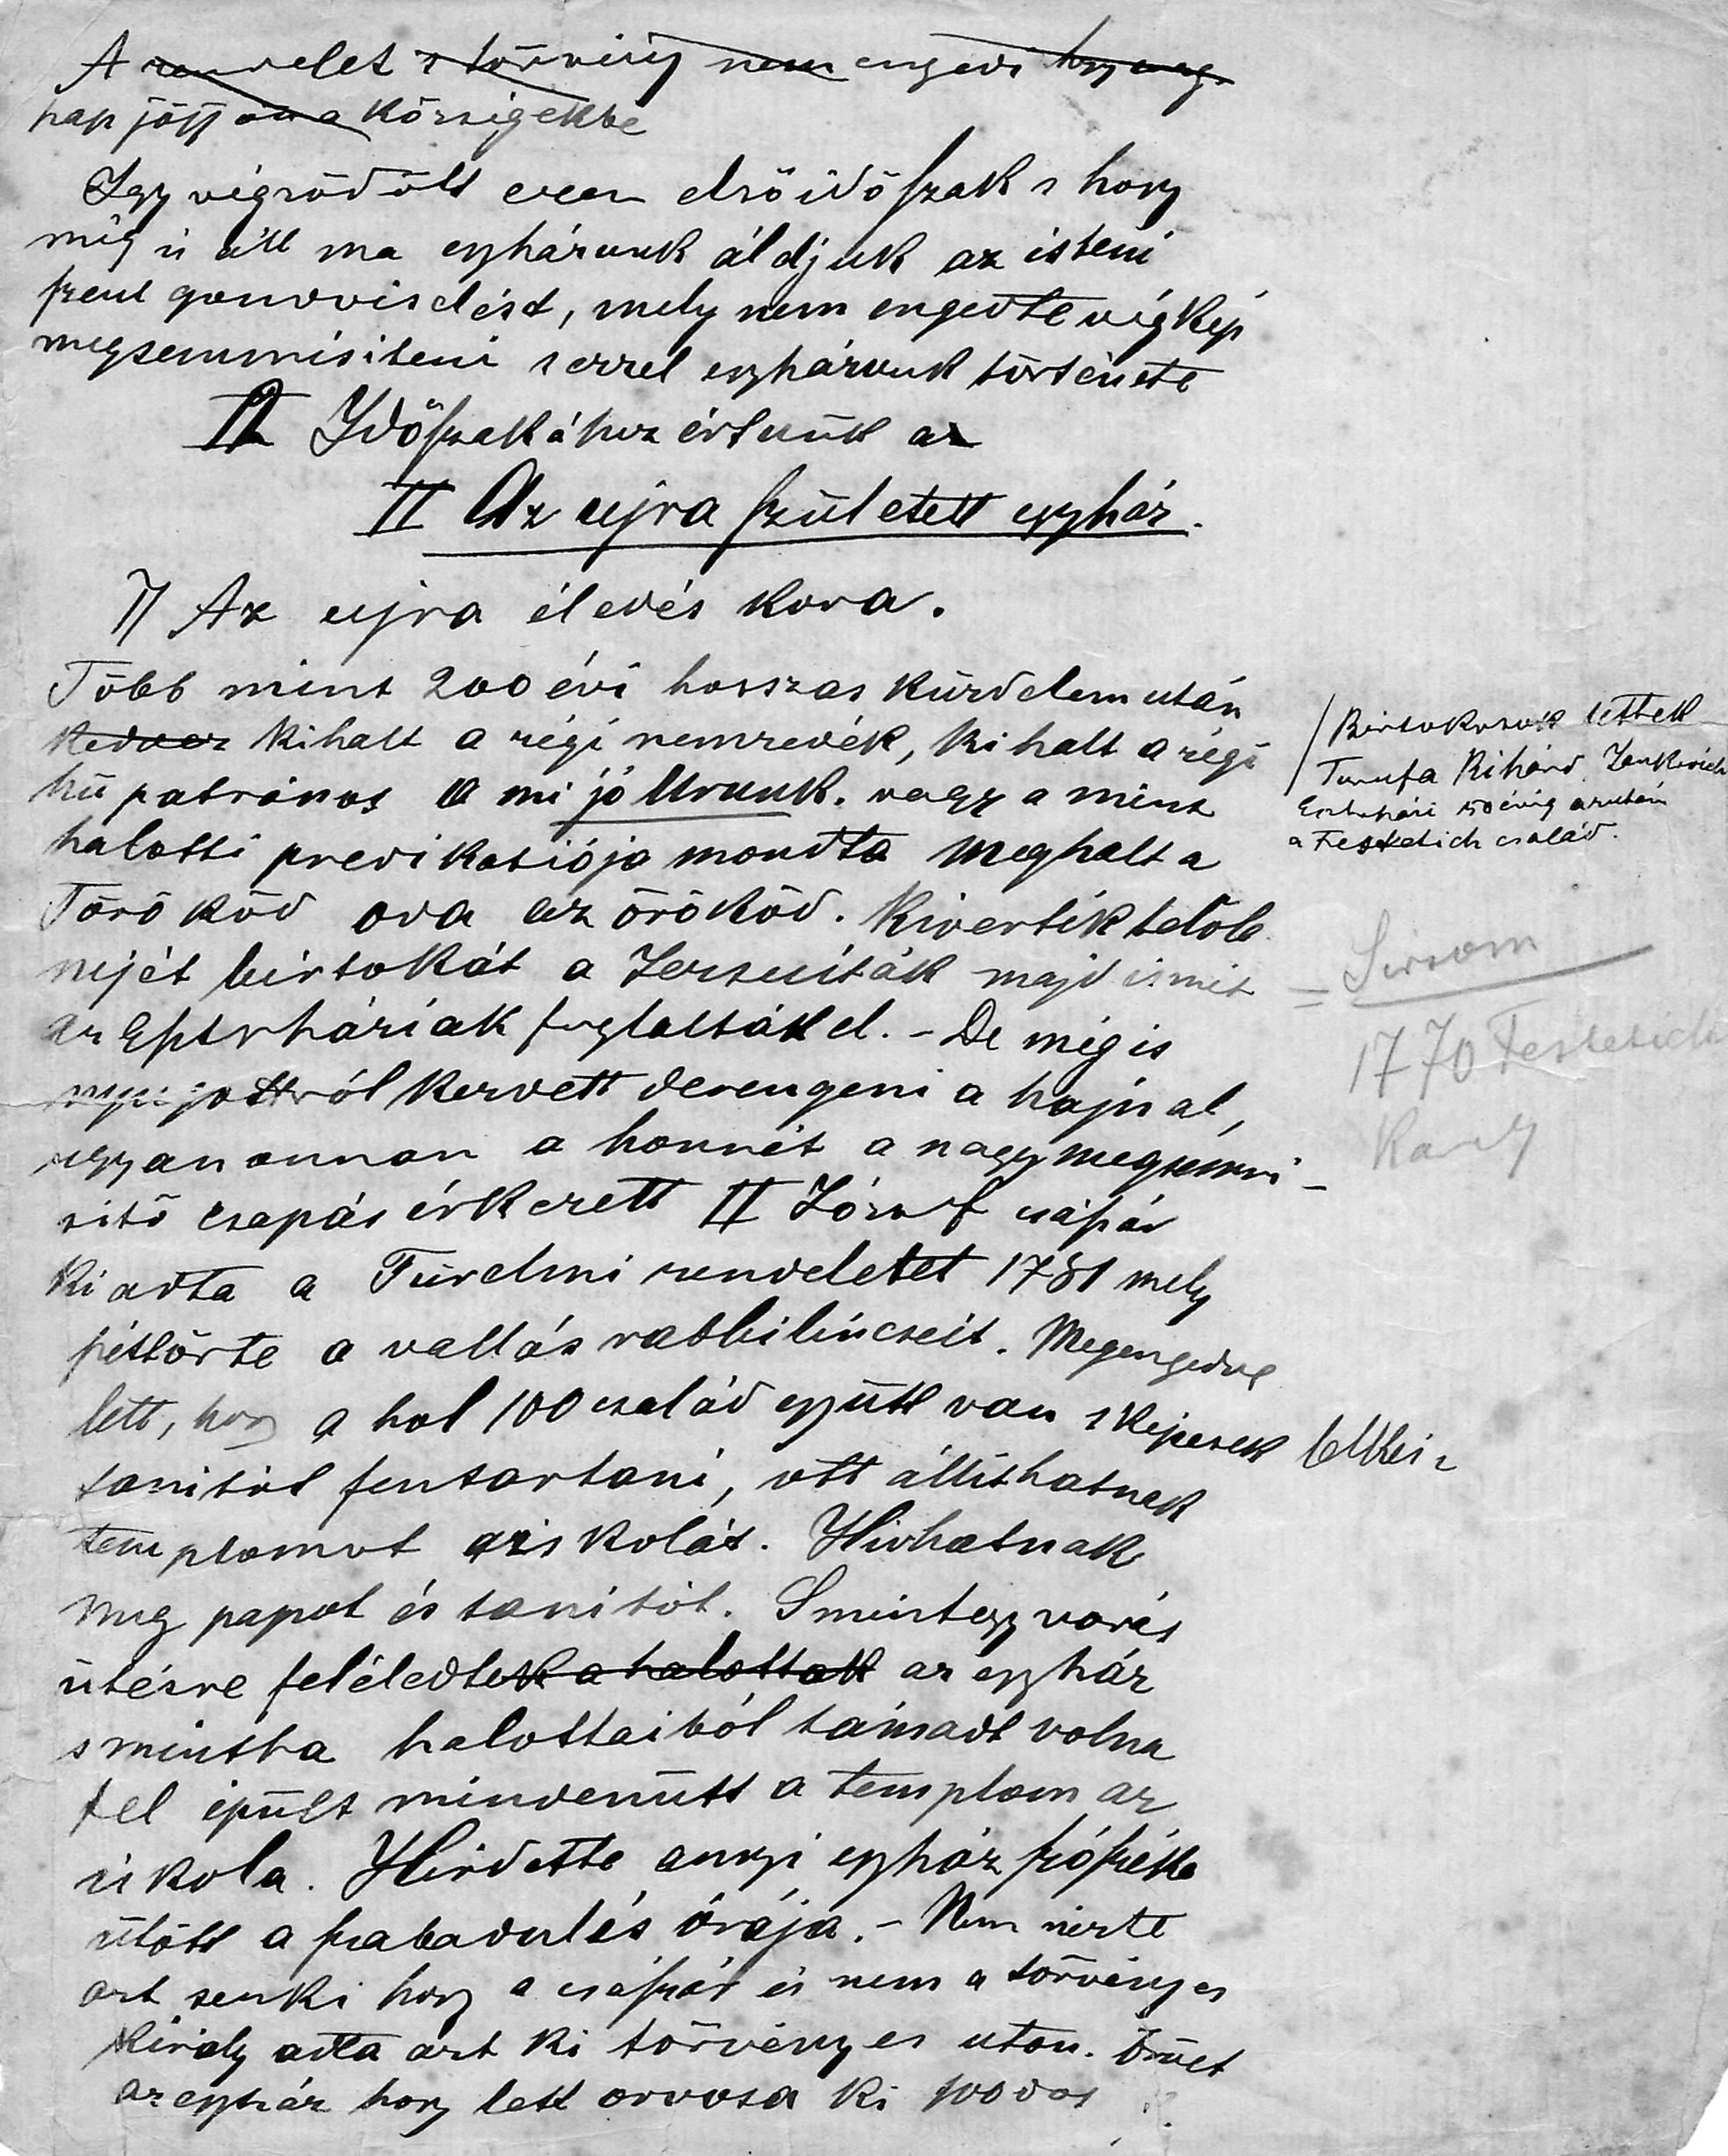 A rendelet s törvény nem engedi hogy
pap jöjjön a községekbe
Igy végződött ezen első időszak s hogy
még is áll ma egyházunk áldjuk az isteni
szent gondviselést, mely nem engedte végkép
megsemmisiteni s ezzel egyházunk története
II Időszakához értünk az
II Az ujra született egyház.
1) Az ujra éledés kora.
Több mint 200 évi hosszas küzdelem után
kihalt a régi nemzedék, kihalt a régi
hű patronos a mi jó Urunk. vagy a mint
halotti predikatiója mondta meghalt a
Török őd oda az örök őd. Kiverték belőle
nejét birtokát a Jezsuiták majd ismét
az Eszterháziak foglalták el. – De mégis
jottról kezdett derengeni a hajnal,
ugyan onnan a honnét a nagy megsemmi-
sitő csapás érkezett II József császár
kiadta a Türelmi rendeletet 1781 mely
széttörte a vallás rabbilincseit. Megengedve
lett, hogy a hol 100 család együtt van s képesek lelkészt
tanitót fentartani, ott állithatnak
templomot az iskolát. Hivhatnak
meg papot és tanitót. S mint egy varázs
ütésre feléledtek a halottak az egyház
s mintha halottaiból támadt volna
fel épült mindenütt a templom az
iskola. Hirdette annyi egyház szószéke
ütött a szabadulás órája. – Nem nézte
azt senki hogy a császár és nem a törvényes
király adta azt ki törvényes uton. Örült
az egyház hogy lett orvosa ki
/ Birtokosok lettek
Rihárd Jankovich
Eszterházi 50 évig azután
a Festetich család.
= Sirsom
1770 Festetich
Károly